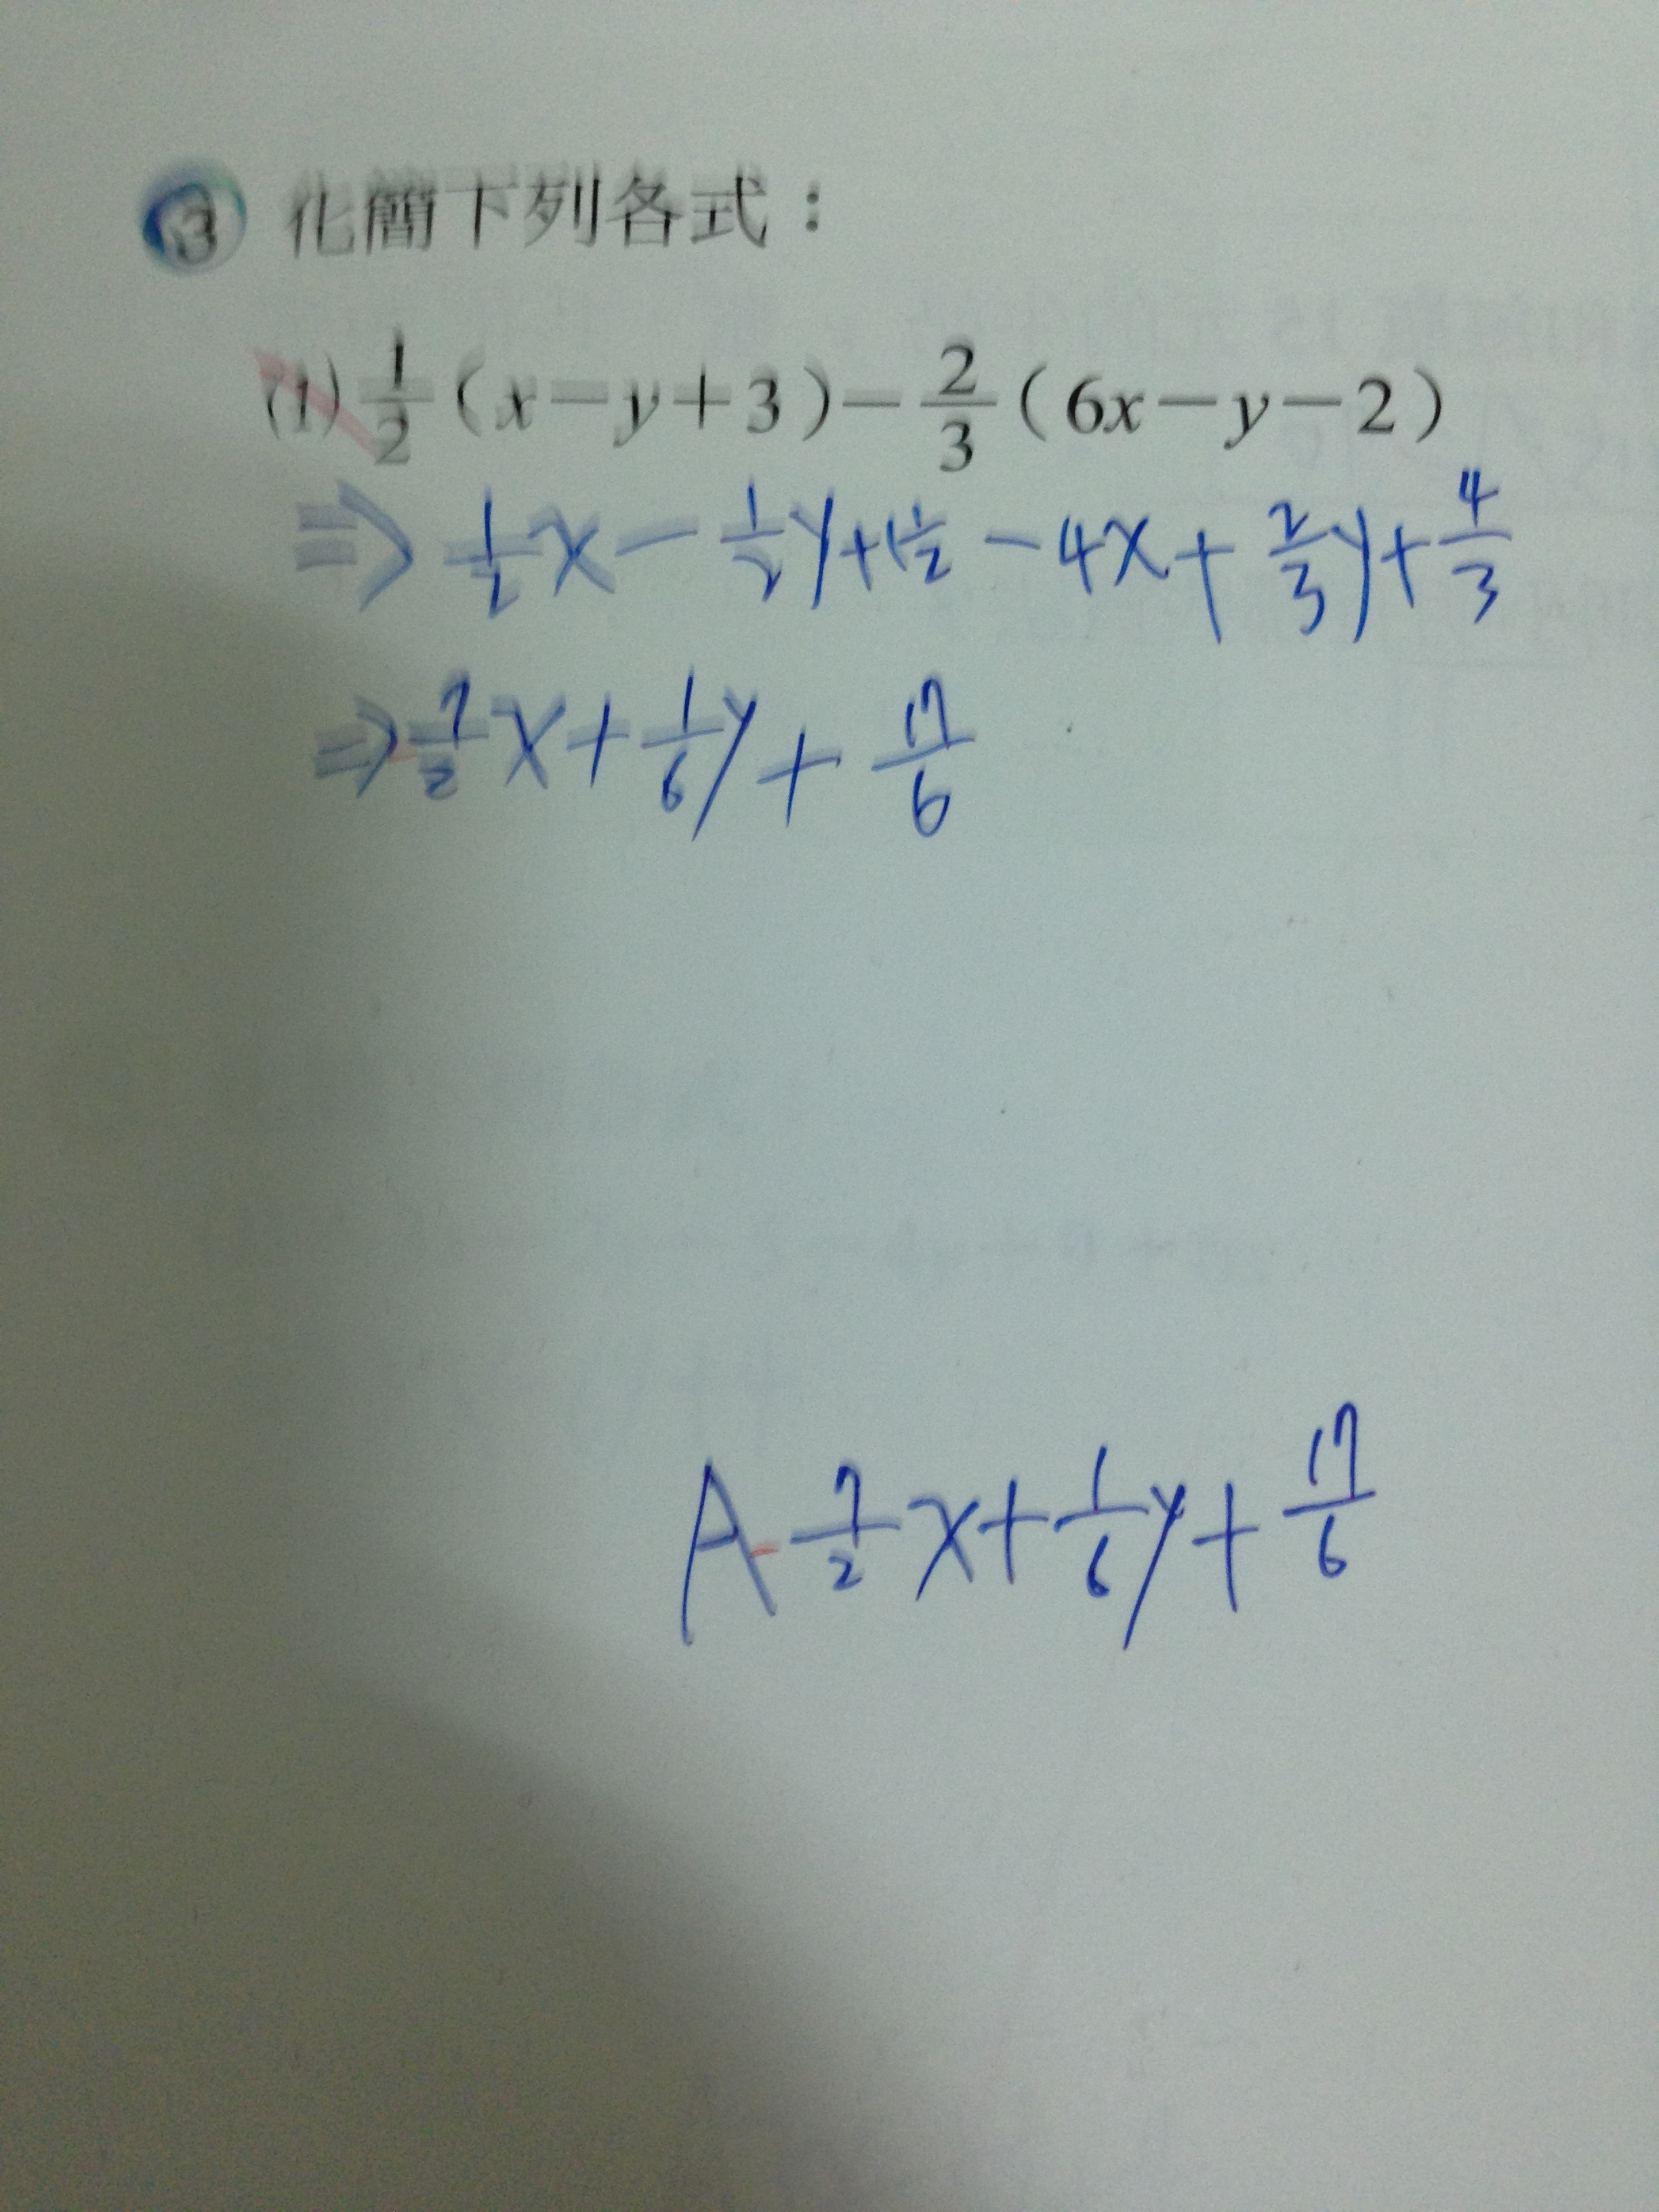 3 化簡下列各式：
(1) 1/2 (x-y+3)- 2/3 (6x-y-2)
⇒ 1/2 x - 1/2 y + 1 1/2 - 4x + 2/3 y + 4/3
⇒ - 7/2 x + 1/6 y + 17/6
A - 7/2 x + 1/6 y + 17/6